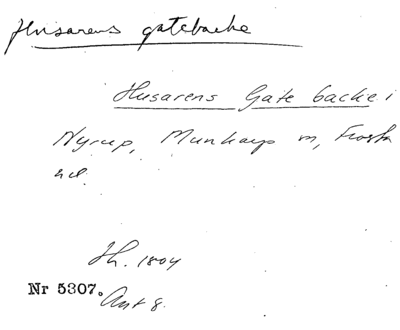 Husarens gatebacke
Husarens Gate backe i
Nyrup, Munkarp sn, Frosta
hd.
Jh. 1804
Nr 5307.
Ant 8.